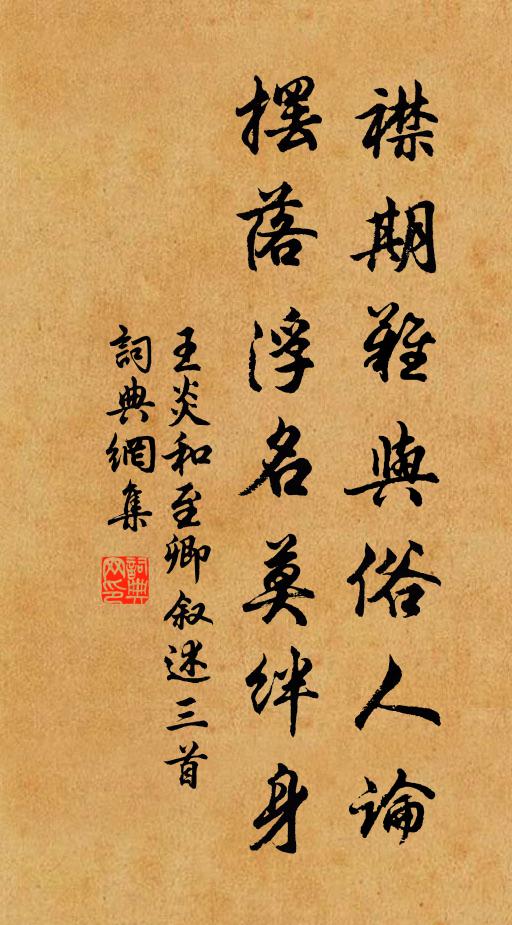 襟期難與俗人論
擺落浮名莫絆身
王炎和至卿叙述三首
詞典網集
詞典網印